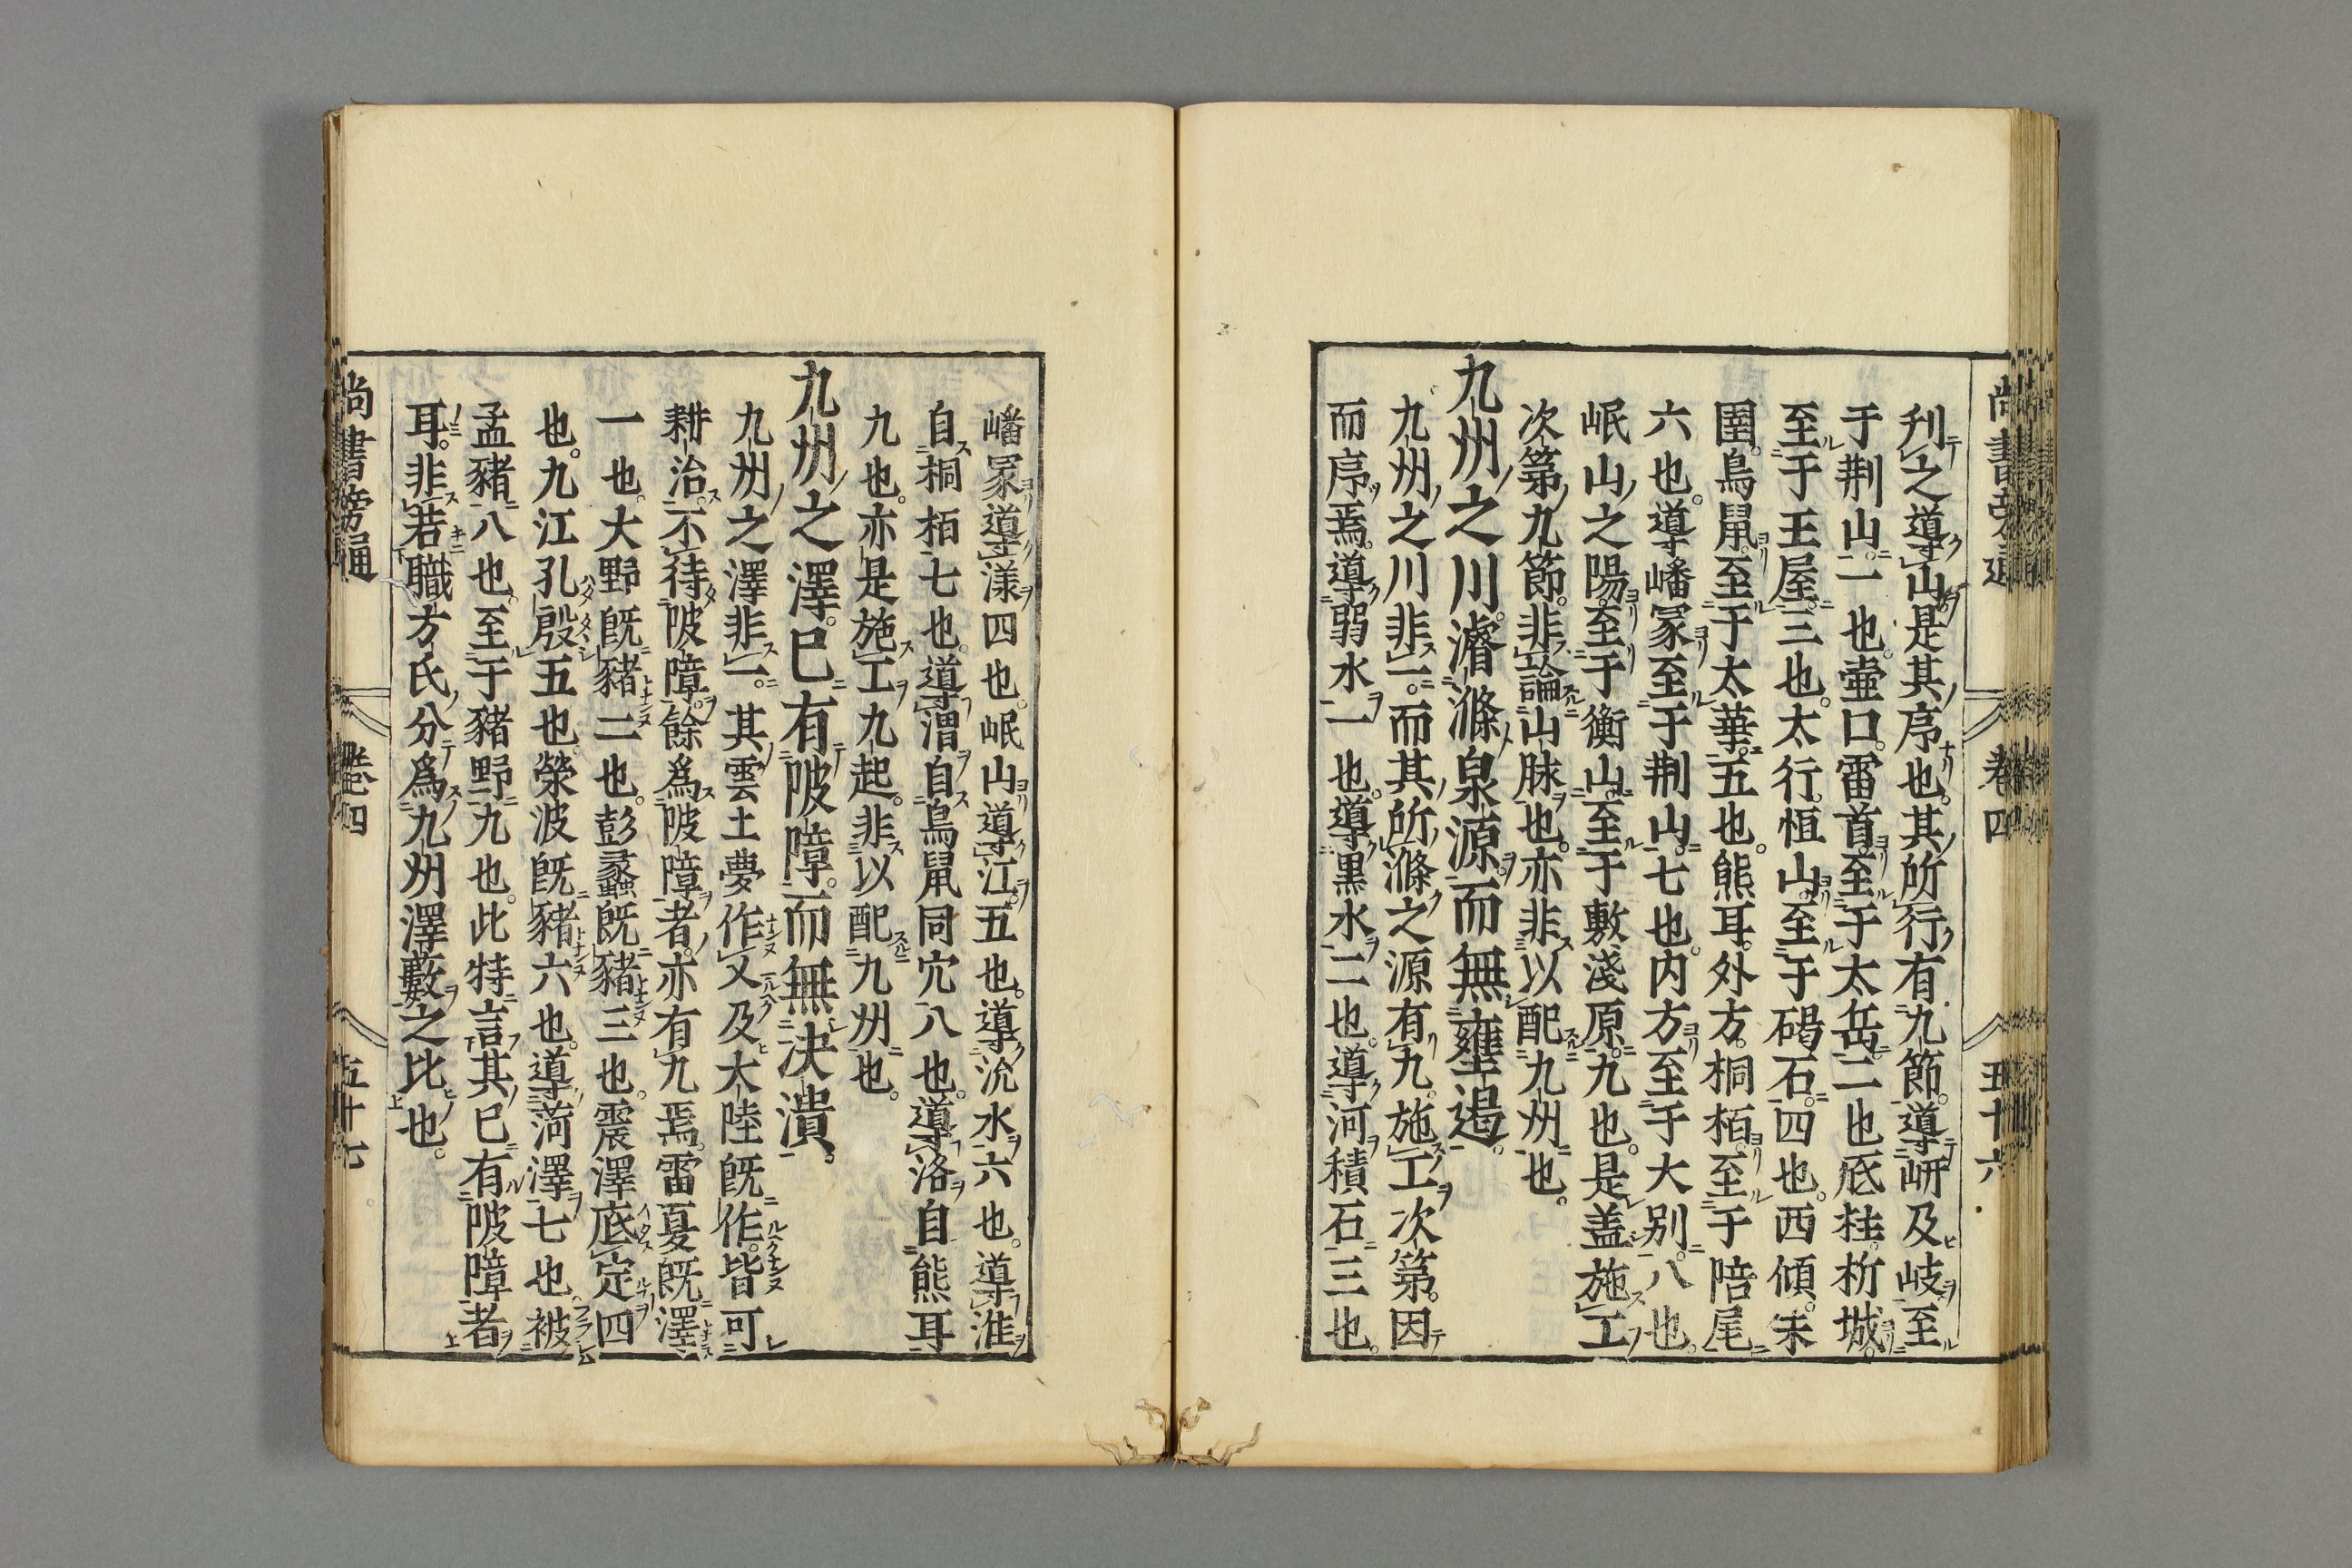 尚書旁通 卷四 五十六
刋之導山是其序也。其所行有九節。導岍及岐至
于荆山。一也。壺口。雷首。至于太岳二也厎柱。析城。
至于王屋。三也。太行。恒山。至于碣石。四也。西傾。朱
圉。鳥鼠。至于太華。五也。熊耳。外方。桐栢。至于陪尾
六也。導嶓冢至于荆山。七也。内方至于大别。八也。
岷山之陽。至于衡山。至于敷淺原。九也。是盖施工
次第九節。非論山脉也。亦非以配九州也。
九州之川。濬滌泉源。而無壅遏。
九州之川非一。而其所滌之源有九。施工次第。因
而序焉。導弱水一也。導黒水二也。導河積石三也。
嶓冢導漾四也。岷山導江。五也。導沇水六也。導淮
自桐栢七也。導渭自鳥鼠同穴八也。導洛自熊耳
九也。亦是施工九起。非以配九州也。
九州之澤。已有陂障。而無决潰。
九州之澤非一。其雲土夢作乂及大陸既作。皆可
耕治。不待陂障。餘爲陂障者。亦有九焉。雷夏既澤
一也。大野既豬二也。彭蠡既豬三也。震澤底定四
也。九江孔殷五也。滎波既豬六也。導菏澤七也。被
孟豬八也。至于豬野九也。此特言其已有陂障者
耳。非若職方氏分爲九州澤藪之比也。
尚書旁通 卷四 五十七